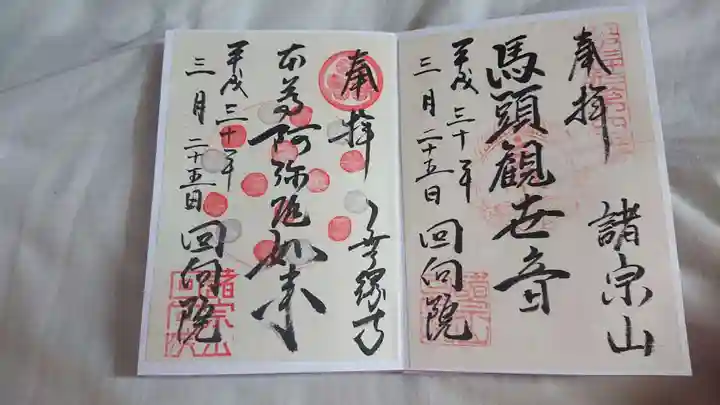 奉拝
諸宗山
馬頭観世音
平成三十年
三月二十五日
回向院
奉拝
無縁寺
本尊阿弥陀如来
平成三十年
三月二十五日
回向院